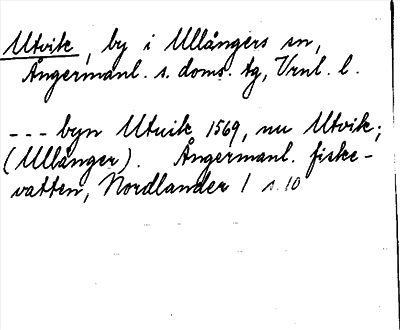 Utvik, by i Ullångers sn,
Ångermanl. s. doms. tg, Vrnl. l.
--- byn Utuik 1569, nu Utvik;
(Ullånger). Ångermanl. fiske-
vatten, Nordlander 1 s. 10